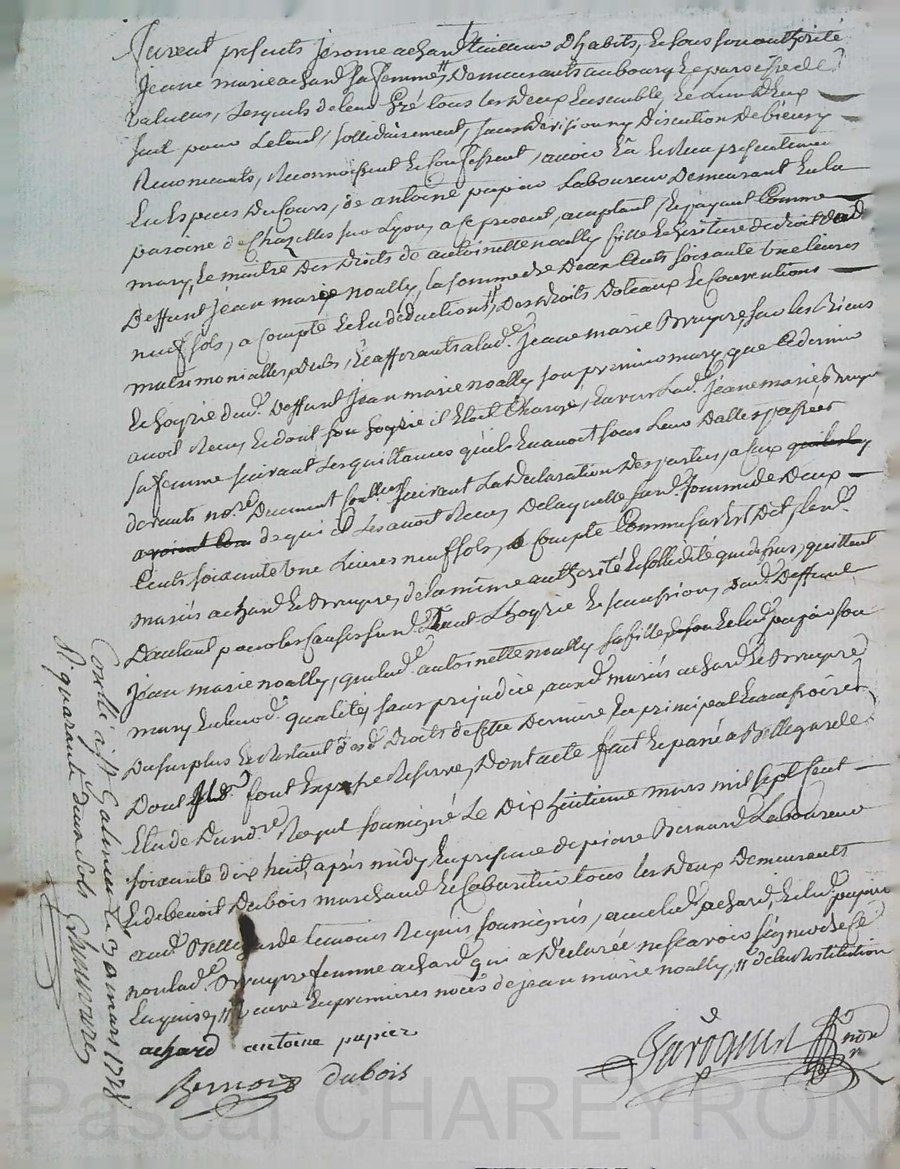 Furent presents Jerome achard tailleur Dhabits, Et sous son authorité
Jeanne marie achard sa femme, Demeurants au bourg Et paroisse de
valucus, Lesquels de leur Gré tous les deux Ensemble, Et Lun D'Eux
seul pour Letout, sollidairement, sans Division ny Discution De biens
Renoncants, Reconnoissent Et Confessent, avoir Eu Et Reçu presentement
En Especes Du Cours, de antoine papier Laboureur Demeurant En la
paroisse de Chazelles sur Lyon, a Ce present, acceptant, Et payant Comme
mary, Et maitre Des Droits de antoinette noally fille Et heritiere de droit dud
Deffunt Jean marie noally, la somme de Deux Cents soixante une livres
neuf sols, a Compte Et En déductions, Des droits Dotaux Et Conventions
matrimonialles, Dubs, Et afferants a lad. Jeanne marie Bruyere, sur les Biens
Et hoyrie dud. Deffunt Jean marie noally son premier mary, que Ce dernier
avoit Reçu, Et dont son hoyrie Etoit Chargé, Envers Lad. Jeanne marie Bruyere
sa femme suivant Les quittances qu'il En avoit sous Leur Dattes passées
devant no.re suivant La Declaration Des parties, a Eux
de qui il Les avoit Reçu, De laquelle sus d. somme de Deux
Cents soixante une Livres neuf sols, a Compte Comme sus Est Dit, les d.
mariés achard Et Bruyere, de la même authorité Et solidité que dessus, quittent
D'autant pour les Causes sus d. tant L'hoyrie Et succession dud. Deffunt
Jean marie noally, que lad. antoinette noally sa fille, Et led. papier son
mary En lad. qualité, sans prejudice auxd. mariés achard Et Bruyere
Du surplus Et Restant desd. Droits de cette Derniere En principal Et accessoires
Dont font Expresse Reserve, Dont acte fait Et passé a Bellegarde
Etude Du no.re Royal soussigné Le Dix huitieme mars mil sept Cent
soixante dix huit, après midy En presence de pierre Bernard Laboureur
Et de benoit Dubois marchand Et Cabaretier tous les Deux Demeurants
aud. Bellegarde temoins Requis soussignés, avec led. achard, Et led. papier
non lad. Bruyere femme achard qui a Declarée ne scavoir signer de Ce
Enquise, veuve En premieres noces de jean marie noally, de la Restitution
achard antoine papier
Bernard dubois
non
Conllé a St Galmier Le 30 mars 1778
R quarante deux sols
Pascal CHAREYRON